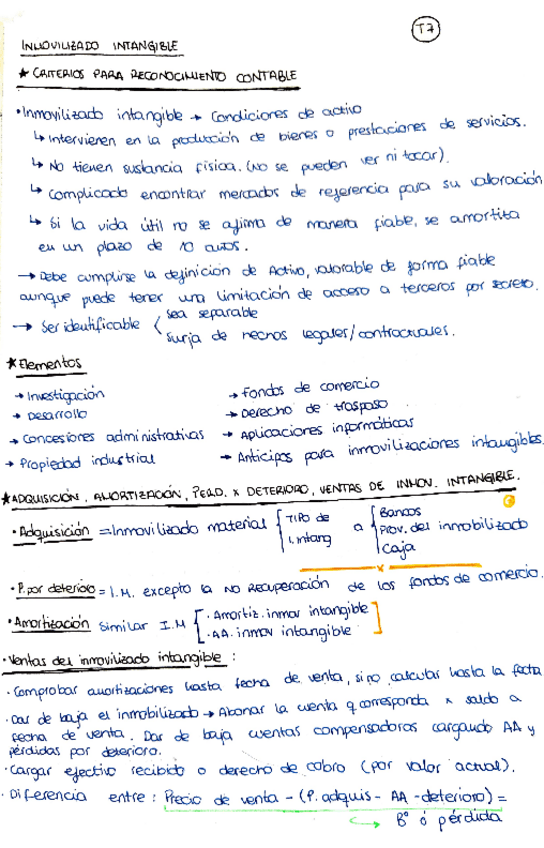 T7
INMOVILIZADO INTANGIBLE
★ CRITERIOS PARA RECONOCIMIENTO CONTABLE
· Inmovilizado intangible → Condiciones de activo
↳ Intervienen en la producción de bienes o prestaciones de servicios.
↳ No tienen sustancia física. (No se pueden ver ni tocar).
↳ Complicado encontrar mercados de referencia para su valoración
↳ Si la vida útil no se afima de manera fiable, se amortiza
en un plazo de 10 años.
→ Debe cumplirse la definición de Activo, valorable de forma fiable
aunque puede tener una limitación de acceso a terceros por secreto.
→ Ser identificable < sea separable
surja de hechos legales/contractuales.
★ Elementos
→ Investigación → Fondos de comercio
→ Desarrollo → Derecho de traspaso
→ Concesiones administrativas → Aplicaciones informáticas
→ Propiedad industrial → Anticipos para inmovilizaciones intangibles.
★ ADQUISICIÓN, AMORTIZACIÓN, PERD. x DETERIORO, VENTAS DE INMOV. INTANGIBLE.
· Adquisición = Inmovilizado material { TIPO de I.intang a { Bancos
Prov. del inmobilizado
Caja
x
· P. por deterioro = I.M. excepto la NO RECUPERACIÓN de los fondos de comercio.
· Amortización similar I.M [ · Amortiz. inmov intangible
· AA. inmov intangible ]
· Ventas del inmovilizado intangible :
· Comprobar amortizaciones hasta fecha de venta, si no calcular hasta la fecha
· Dar de baja el inmobilizado → Abonar la cuenta q corresponda x saldo a
fecha de venta. Dar de baja cuentas compensadoras cargando AA y
pérdidas por deterioro.
· Cargar efectivo recibido o derecho de cobro (por valor actual).
· Diferencia entre : Precio de venta - (P. adquis - AA - deterioro) =
↳ Bº ó pérdida